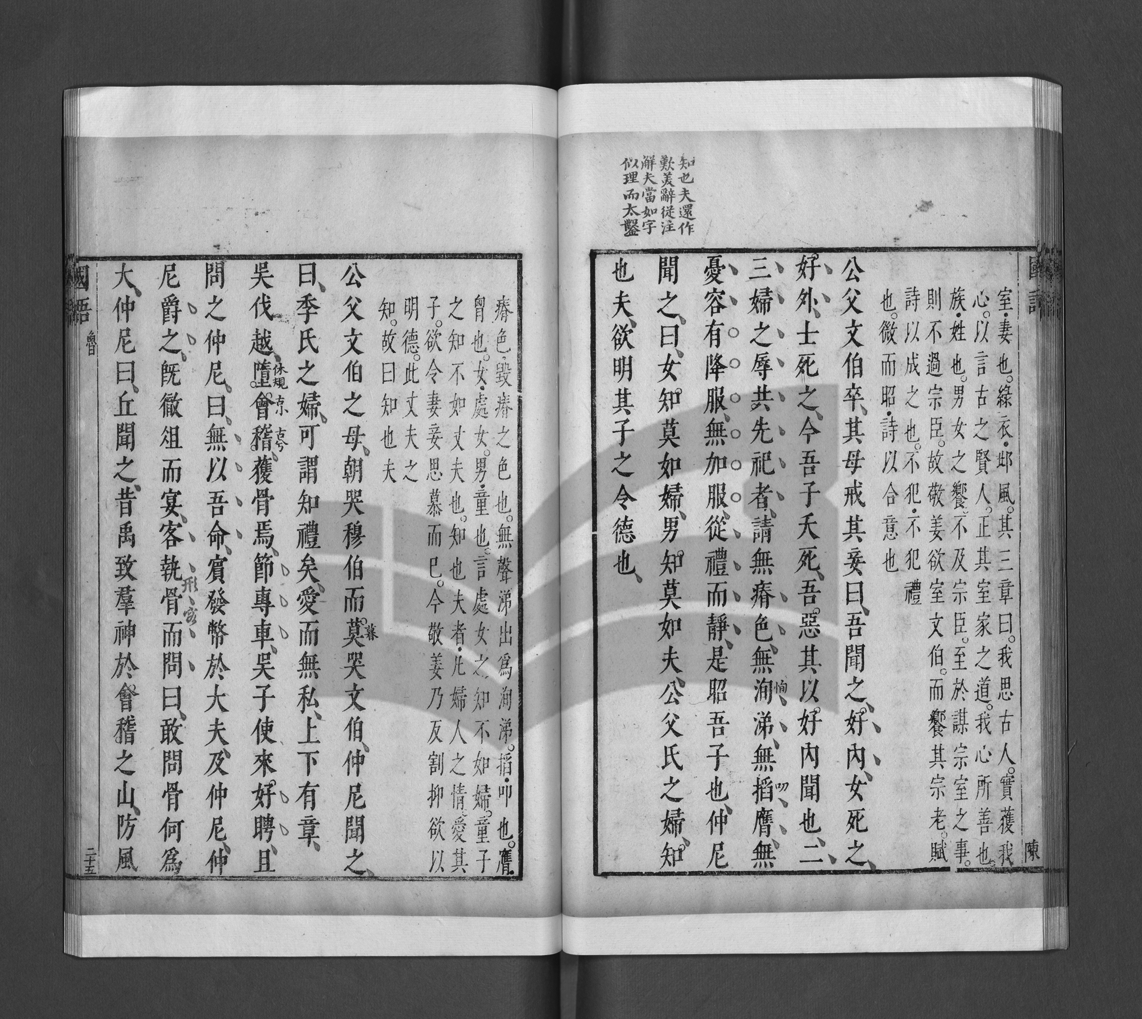 知也夫還作
歎美辭從注
解夫當如字
似理而太鑿
國語
室。妻也。綠衣。邶風。其三章曰。我思古人。實獲我
心。以言古之賢人。正其室家之道。我心所善也。
族。姓也。男女之饗。不及宗臣。至於謀宗室之事。
則不過宗臣。故敬姜欲室文伯。而饗其宗老。賦
詩以成之也。不犯。不犯禮
也。微而昭。詩以合意也
公父文伯卒、其母戒其妾曰、吾聞之、好內、女死之、
好外、士死之、今吾子夭死、吾惡其以好內聞也、二
三婦之辱共先祀者、請無瘠色、無洵涕、無搯膺、無
恂
叨
憂容、有降服、無加服、從禮而靜、是昭吾子也、仲尼
聞之、曰、女知莫如婦、男知莫如夫、公父氏之婦、知
也夫、欲明其子之令德也、
陳
瘠色。毀瘠之色也。無聲涕出爲洵涕。搯。叩也。膺。
胷也。女。處女。男。童也。言處女之知不如婦。童子
之知不如丈夫也。知也夫者。凡婦人之情。愛其
子。欲令妻妾思慕而已。今敬姜乃反割抑欲以
明德。此丈夫之
知。故曰知也夫
公父文伯之母、朝哭穆伯而莫哭文伯、仲尼聞之、
暮
曰、季氏之婦、可謂知禮矣、愛而無私、上下有章、
吳伐越、墮會稽、獲骨焉、節專車、吳子使來好聘、且
休規
古兮
問之仲尼、曰、無以吾命、賓發幣於大夫、及仲尼、仲
尼爵之、旣徹俎而宴、客執骨而問曰、敢問骨何爲
大、仲尼曰、丘聞之、昔禹致羣神於會稽之山、防風
國語
魯
二十五